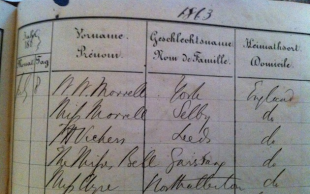 1863
Jahr
Monat Tag
Vorname
Prénom
Geschlechtsname
Nom de Famille
Heimathsort
Domicile
W. W. Morrell York England
Miss Morrell Selby do
Vickers Leeds do
The Misses Bell do
Miss Ayre Northallerton do